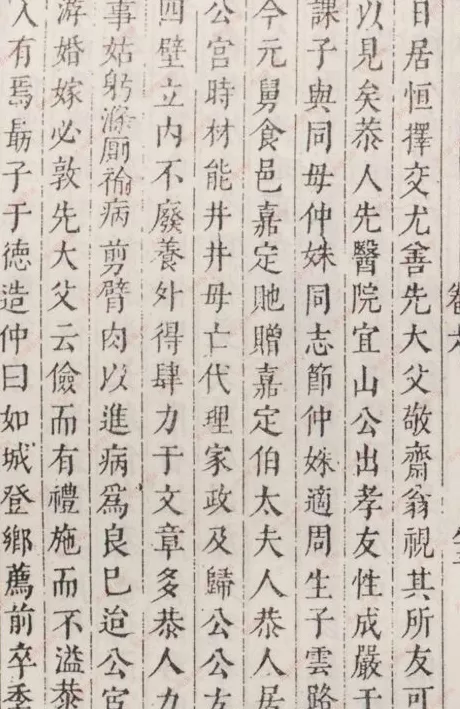 日居恒擇交尤善先大父敬齋翁視其所友可
以見矣恭人先醫院宜山公出孝友性成嚴于
課子與同母仲妹同志節仲妹適周生子雲路
今元舅食邑嘉定貤贈嘉定伯太夫人恭人居
公宮時材能井井母亡代理家政及歸公公方
四壁立內不廢養外得肆力于文章多恭人力
事姑躬滌厠褕病剪臂肉以進病爲良已迨公宦
游婚嫁必敦先大父云儉而有禮施而不溢恭
人有焉最子于德造仲曰如城登鄉薦前卒季
卷